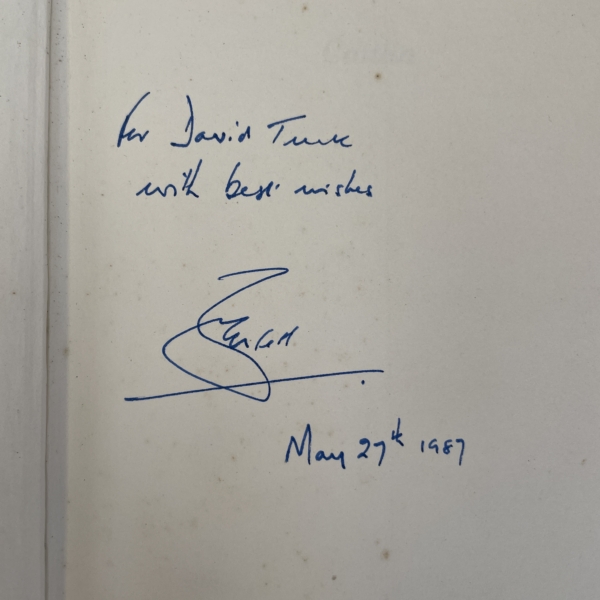 for David Tunk
with best wishes
May 27th 1987